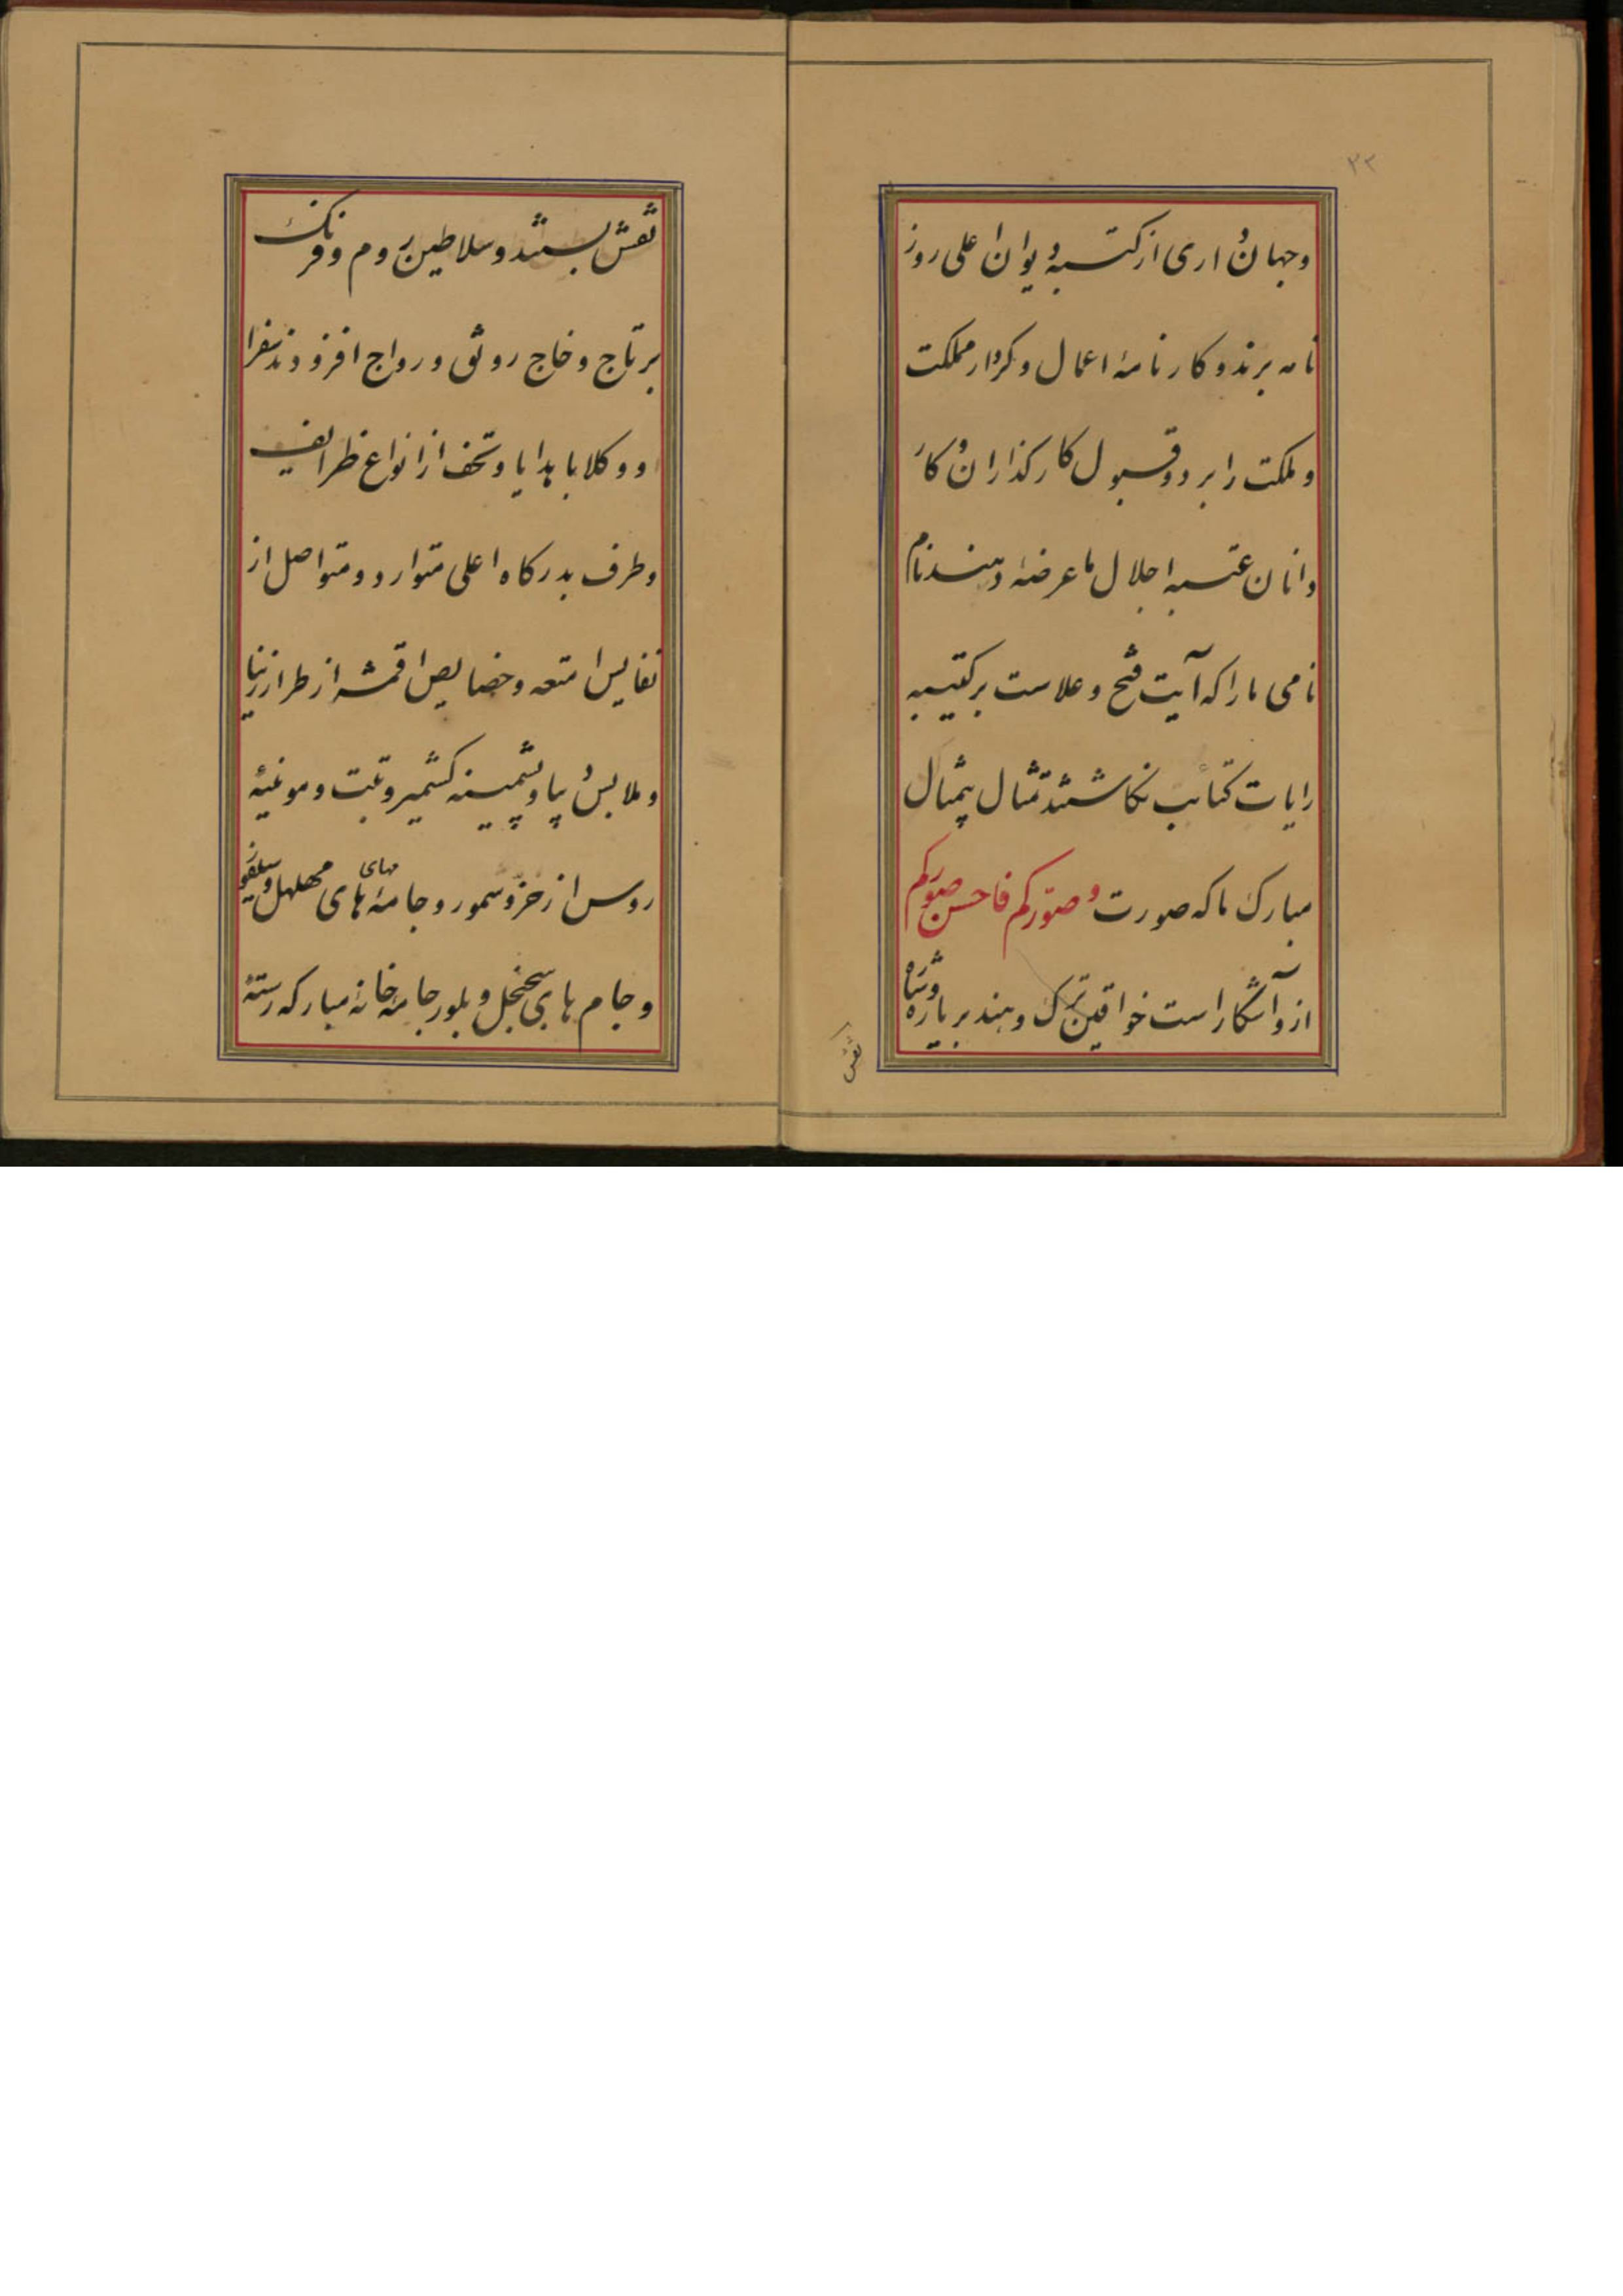 ۲۲
وجهان داری از کتبه دیوان اعلی روز
نامه برند و کارنامهٔ اعمال و کردار مملکت
و ملکت را بر رد و قبول کارکذاران و کار
دانان عتبه اجلال ما عرضه دهند نام
نامی ما را که آیت فتح و علاست بر کتیبه
رایات کتائب نکاشتند تمثال بیمثال
مبارک ما که صورت و صوّرکم فاحسن صورکم
ازو آشکاراست خواقین ترک و هند بر یاره و شاره
نقش
نقش بستند و سلاطین روم و فرنک
بر تاج و خاج رونق و رواج افزودند سفرا
و وکلا با هدایا و تحف از انواع ظرایف
و طرف بدرکاه اعلی متوارد و متواصل از
نفایس امتعه و خصایص اقمشه از طراز
و ملابس پشمینه کشمیر و تبت و
روس از خز و سمور و جامه های مهلهل و
و جام های سجنجل و بلور جامه خانهٔ مبارکه رستهٔ